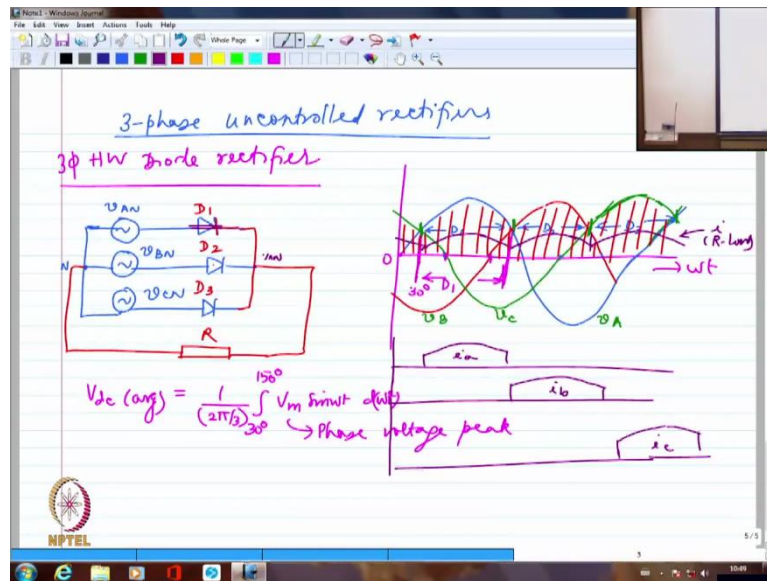 Note1 - Windows Journal
File Edit View Insert Actions Tools Help
Whole Page
3-phase uncontrolled rectifiers
3ϕ HW Diode rectifier
vAN D1
vBN D2
vCN D3
N
R
Vdc (avg) = 1/(2π/3) ∫30°^150° Vm Sinωt d(ωt)
→ Phase voltage peak
D1
0
30°
D1
vB
vC
vA
→ ωt
i
ia
ib
ic
NPTEL
5/5
3
10:49